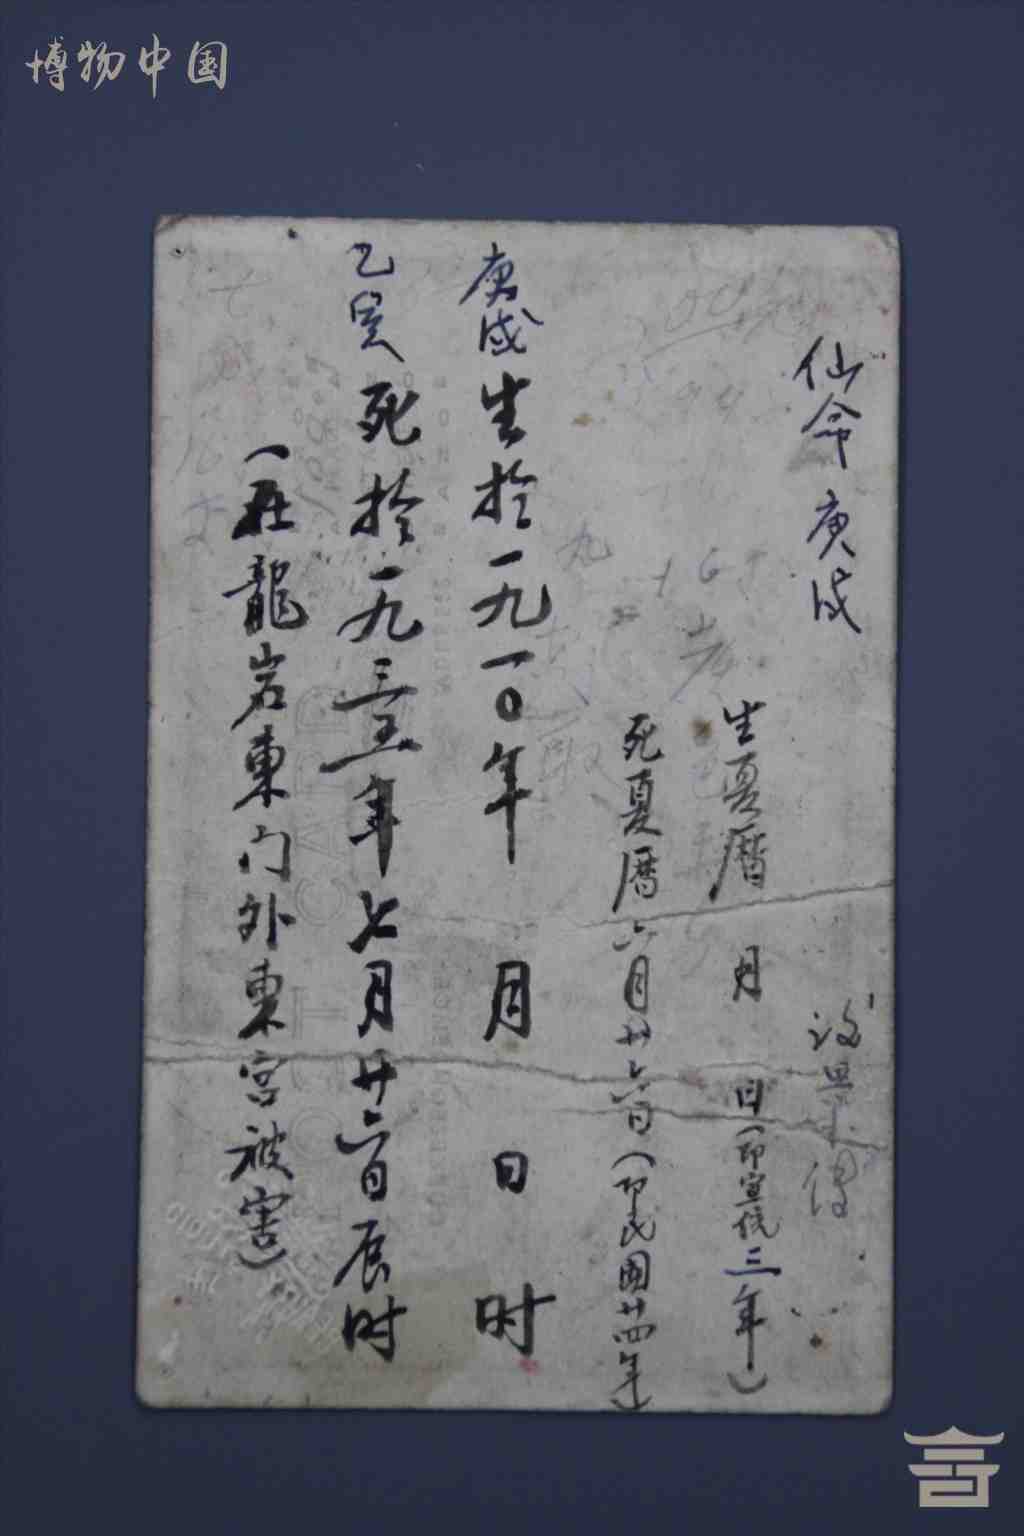 博物中国
仙命庚戌
生夏曆 月 日(即宣统三年)
死夏曆六月廿六日(即民國廿四年)
庚戌生於一九一〇年 月 日 时
乙亥死於一九三五年七月廿六日辰时
(在龍岩東门外東宫被害)